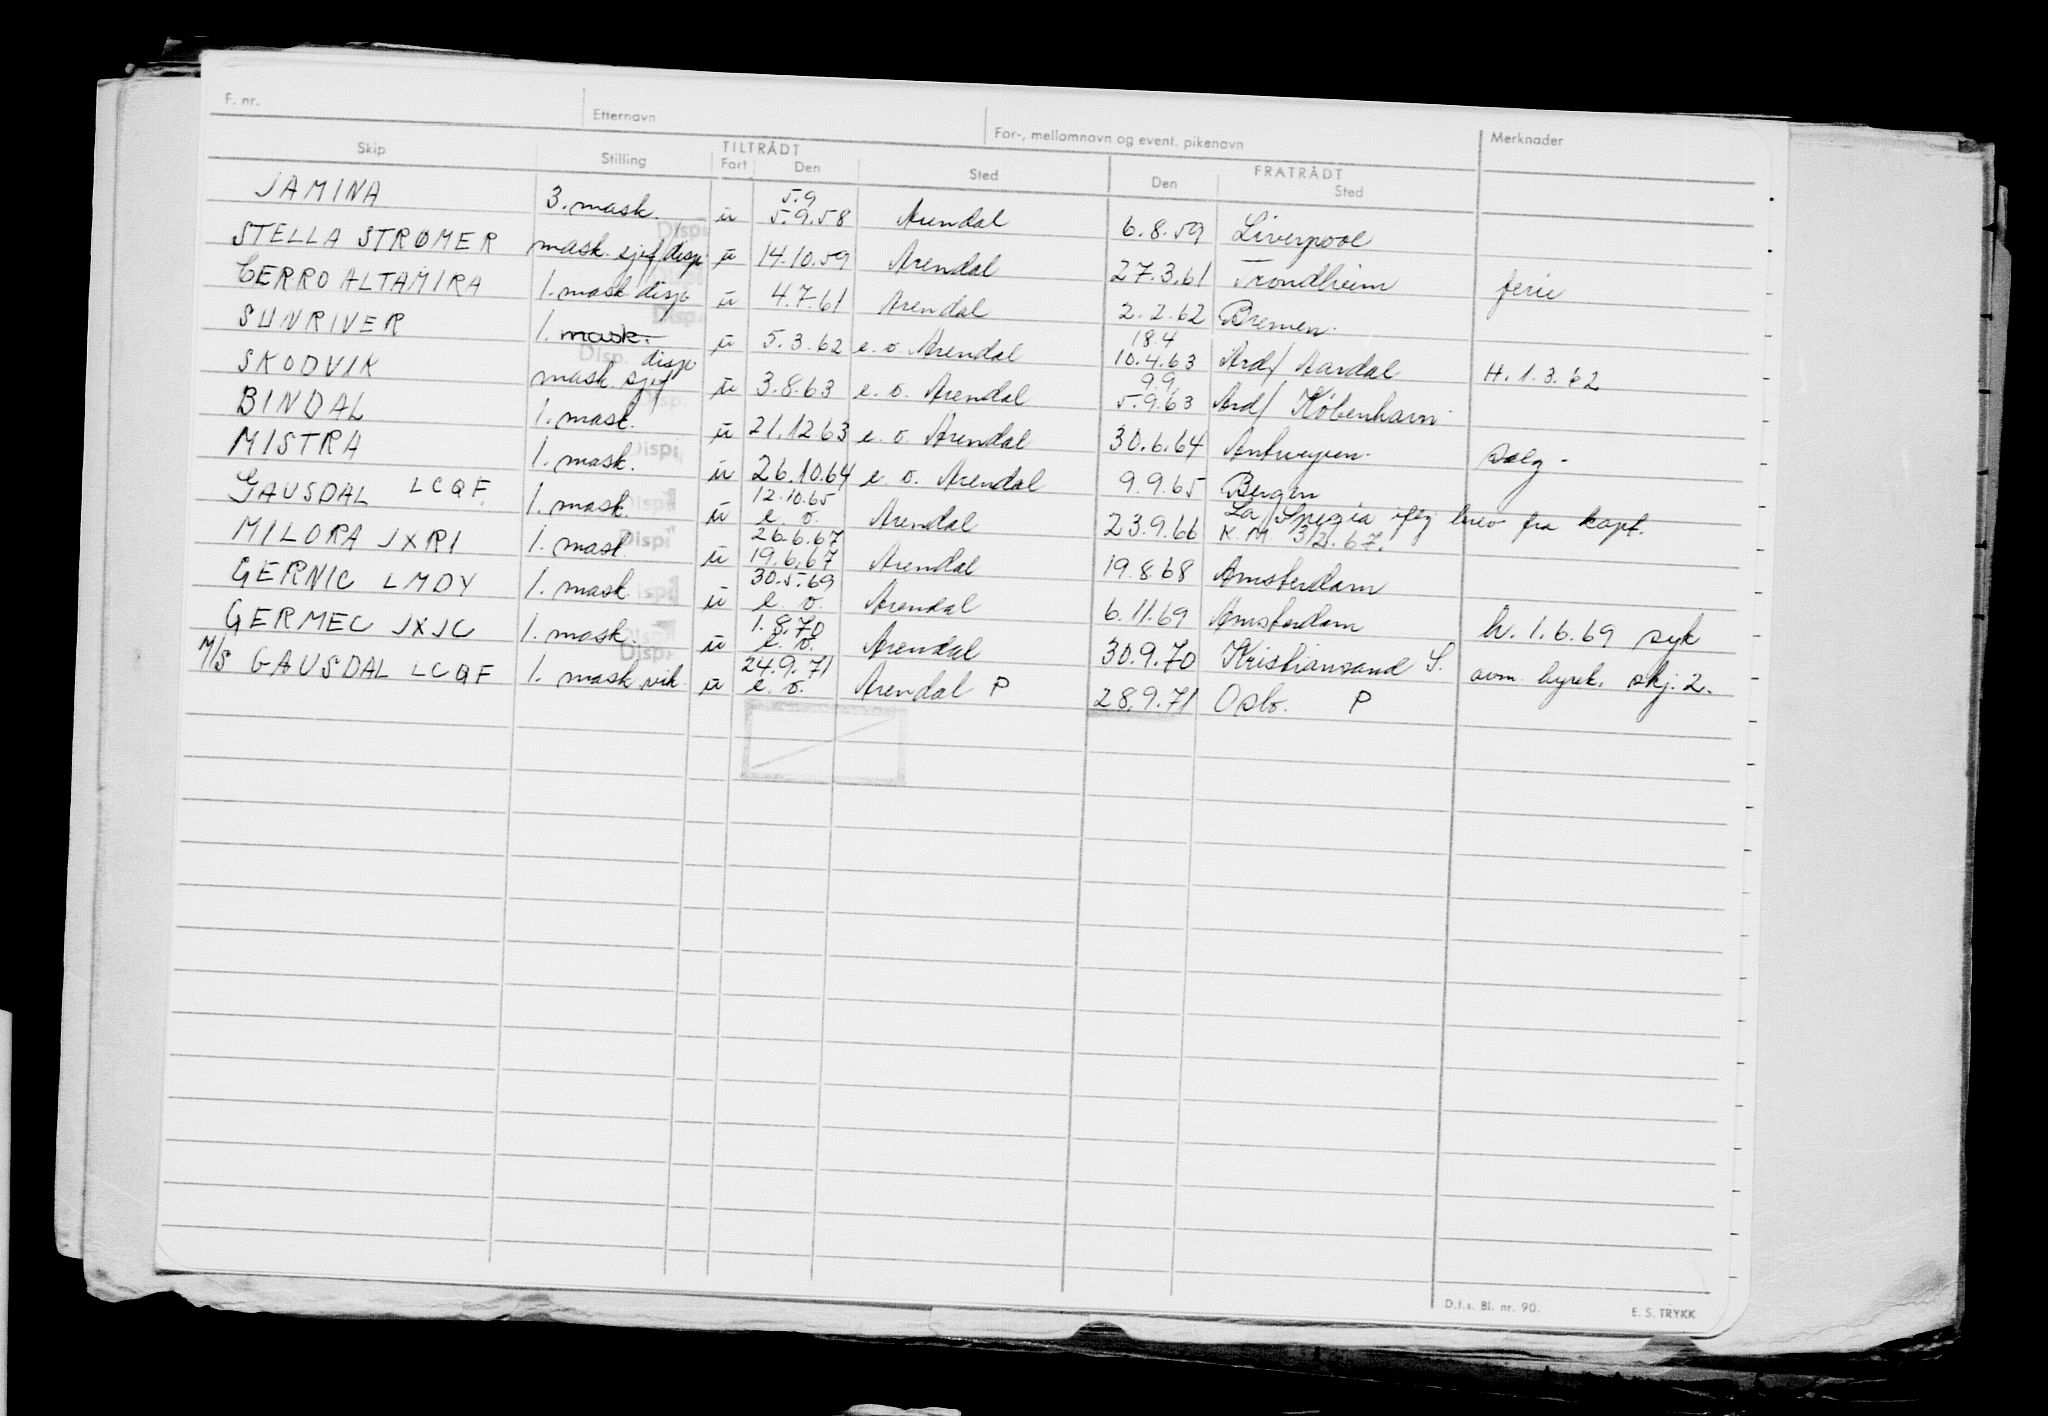 F. nr. Etternavn For-, mellomnavn og event. pikenavn Merknader
Skip Stilling TILTRÅDT Fart Den Sted FRATRÅDT Den Sted
JAMINA 3. mask. u 5.9 5.9.58 Arendal 6.8.59 Liverpool
STELLA STRØMER mask. sjef disp u 14.10.59 Arendal 27.3.61 Trondheim ferie
CERRO ALTAMIRA 1. mask disp u 4.7.61 Arendal 2.2.62 Bremen.
SUNRIVER 1. mask. disp u 5.3.62 e. o. Arendal 18.4 10.4.63 Ard/ Aardal H. 1.3.62
SKODVIK mask sjef u 3.8.63 e. o. Arendal 9.9 5.9.63 Ard/ København
BINDAL 1. mask. u 21.12 63 e. o. Arendal 30.6.64 Antwerpen. salg -
MISTRA 1. mask. u 26.10.64 e. o. Arendal 9.9.65 Bergen
GAUSDAL LCQF 1. mask. u 12.10.65 e. o. Arendal 23.9.66 La Spezia iflg brev fra kapt. K.M. 3/2.67.
MILORA JXRI 1. mask u 26.6.67 19.6.67 Arendal 19.8.68 Amsterdam
GERNIC LMDY 1. mask u 30.5.69 e. o. Arendal 6.11.69 Amsterdam h. 1.6.69 syk
GERMEC JXJC 1. mask. u 1.8.70 e. o. Arendal 30.9.70 Kristiansand S. avm. hyrek. skj. 2.
M/S GAUSDAL LCQF 1. mask vik. u 24.9.71 e. o. Arendal P 28.9.71 Oslo. P
D.f.s. Bl. nr. 90. E. S. TRYKK